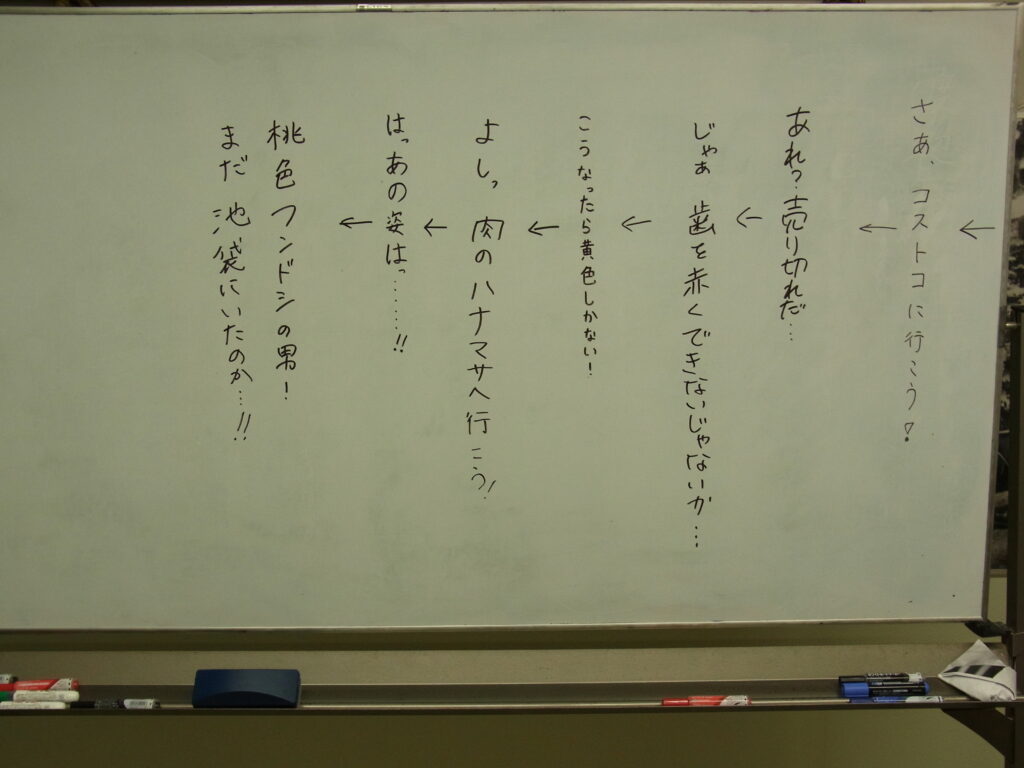 さあ、コストコに行こう!
あれ?売り切れだ…
じゃあ 歯を赤くできないじゃないか…
こうなったら黄色しかない!
よしっ 肉のハナマサへ行こう!
はっあの姿はっ………!!
桃色フンドシの男!
まだ 池袋にいたのか…!!